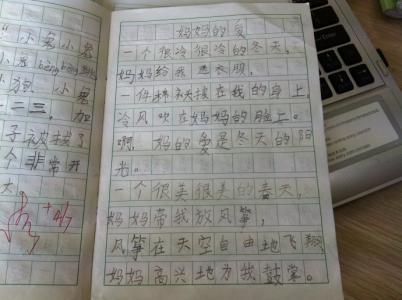 小
小狗
二三，加
子被拔了
个非常开
妈妈的爱
一个很冷很冷的冬天，
妈妈给我送衣服，
一件在我的身上，
冷风吹在妈妈的脸上。
啊，妈的爱是冬天的阳
光。
一个很美很美的春天，
妈妈带我放风筝，
风筝在天空自由地飞翔
妈妈高兴地为我鼓掌。